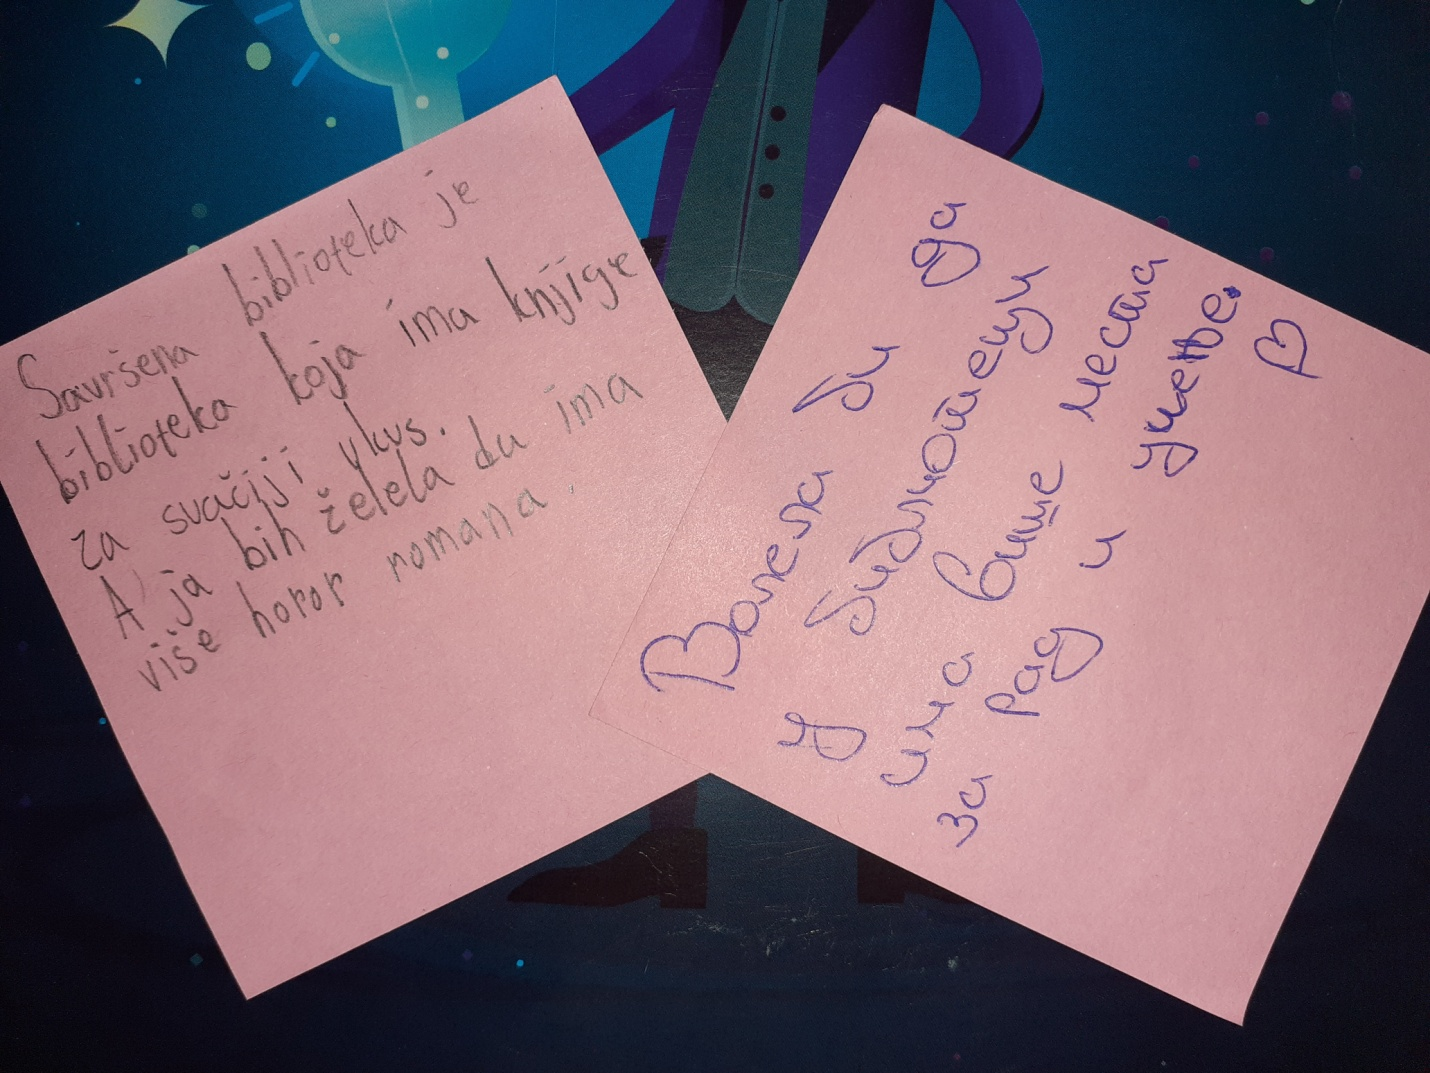 Savršena biblioteka je
biblioteka koja ima knjige
za svačiji ukus.
A ja bih želela da ima
više horor romana.
Волела би да
у библиотеци
има више места
за рад и учење.